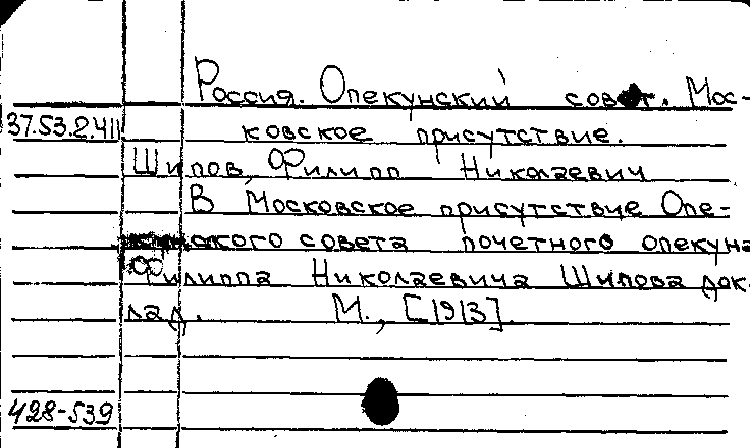 Россия. Опекунский совет. Мос-
37.53.2.411
ковское присутствие.
Шипов, Филипп Николаевич
В Московское присутствие Опе-
кунского совета почетного опекуна
Филиппа Николаевича Шипова док-
лад. М., [1913].
428-539